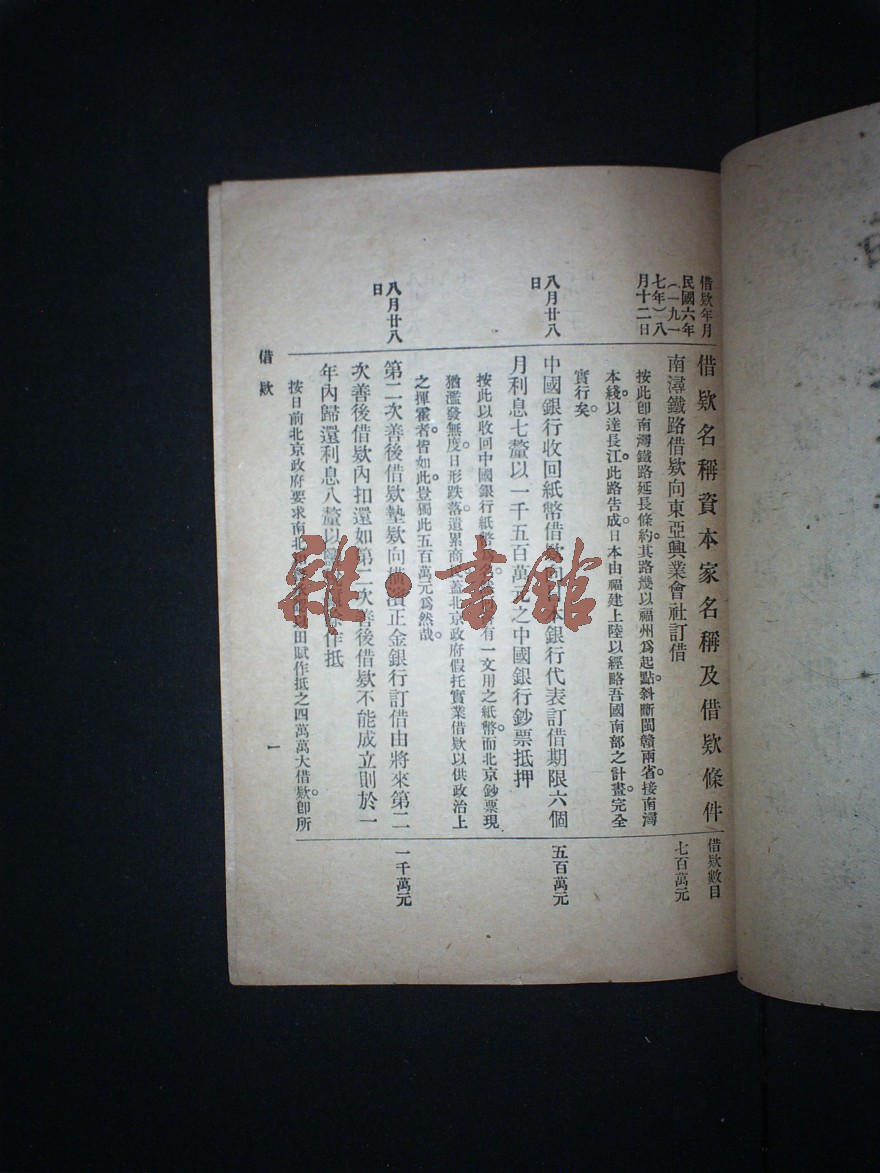 借欵年月
民國六年
(一九一
七年)八
月十二日
借欵名稱資本家名稱及借欵條件
借欵數目
南潯鐵路借欵向東亞興業會社訂借
七百萬元
按此卽南潯鐵路延長條約。其路幾以福州爲起點。斜斷閩贛兩省。接南潯
本綫。以達長江。此路告成。日本由福建上陸以經略吾國南部之計畫。完全
實行矣。
八月廿八
日
中國銀行收回紙幣借欵向 本銀行代表訂借期限六個
五百萬元
月利息七釐以一千五百萬元之中國銀行鈔票抵押
按此以收回中國銀行紙幣 名 有一文用之紙幣。而北京鈔票現
猶濫發無度。日形跌落。遺累商民。蓋北京政府假托實業借欵以供政治上
之揮霍者。皆如此。豈獨此五百萬元爲然哉。
八月廿八
日
第二次善後借欵墊欵向橫濱正金銀行訂借由將來第二
一千萬元
次善後借欵內扣還如第二次善後借欵不能成立則於一
年內歸還利息八釐以 作抵
按日前北京政府要求南北 田賦作抵之四萬萬大借欵。卽所
借欵
一
雜·書館